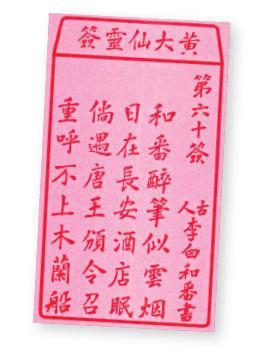 黃大仙靈簽
第六十簽
古人李白和番書
和番醉筆似雲烟
日在長安酒店眠
倘遇唐王頒令召
重呼不上木蘭船